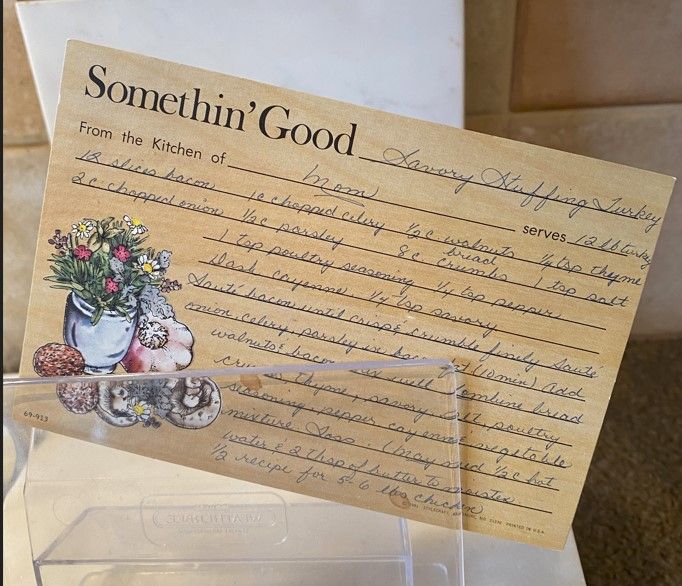 Somethin' Good Savory Stuffing Turkey
From the Kitchen of Mom serves 12 lb turkey
12 slices bacon 1c chopped celery ½ c walnuts ¼ tsp thyme
2c chopped onion ½c parsley 8c bread crumbs 1 tsp salt
1 tsp poultry seasoning ¼ tsp pepper
Dash cayenne ¼ tsp savory
Sauté bacon until crisp & crumble finely Sauté
onion, celery, parsley in (10 min) Add
walnuts & bacon Combine bread
thyme, savory salt, poultry
seasoning, pepper, cayenne vegetable
mixture. Toss. (may need ½c hot
water & 2 tbsp butter to moisten
½ recipe for 5-6 lbs chicken
69-913
PRINTED IN U.S.A.